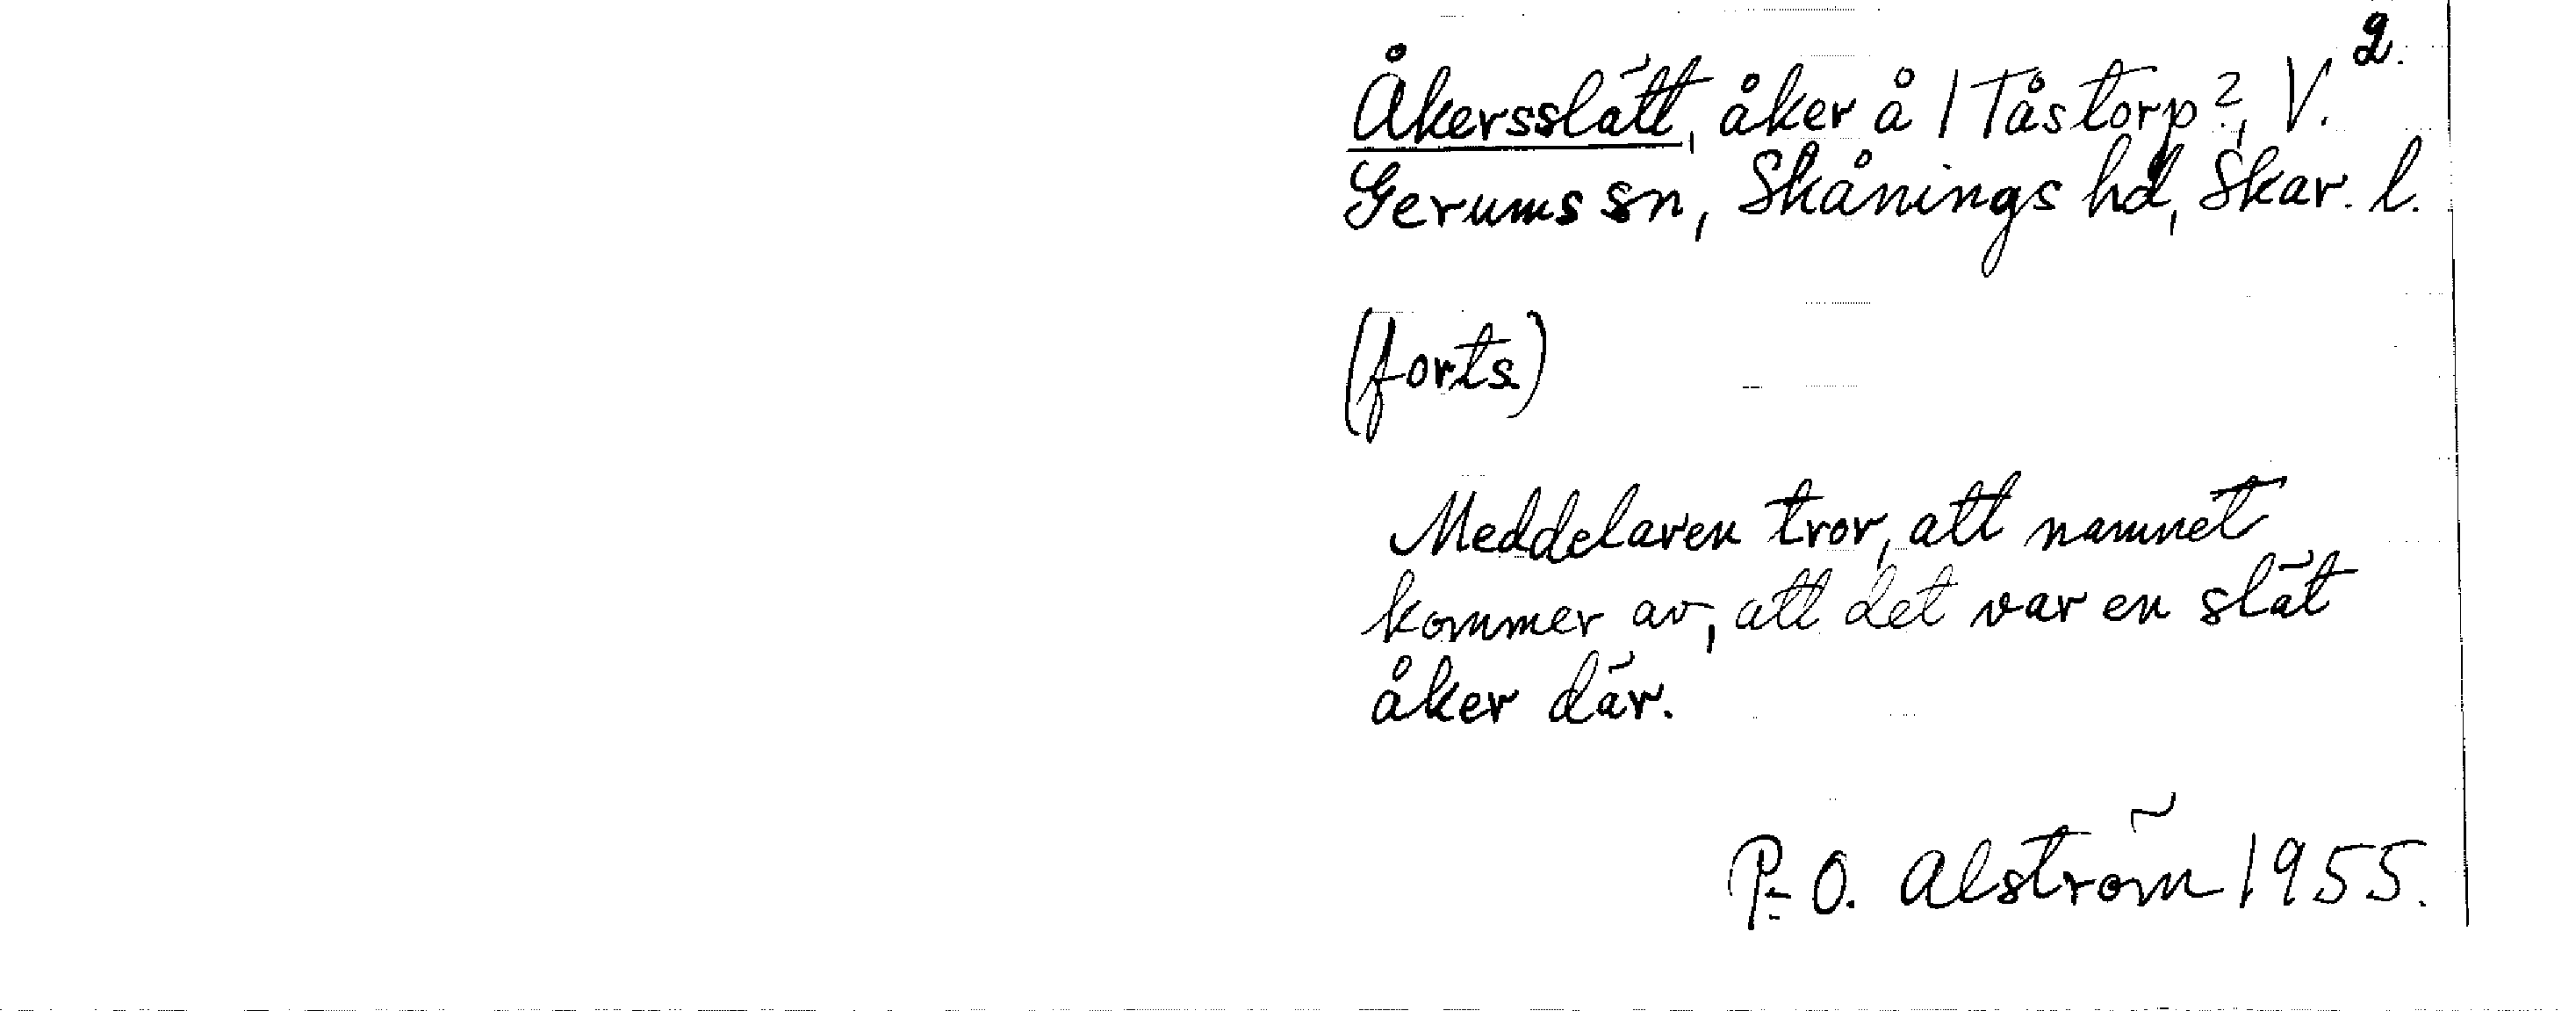 2.
Åkersslätt, åker å 1 Tåstorp 2, V.
Gerums sn, Skånings hd, Skar. l.
(forts)
Meddelaren tror, att namnet
kommer av, att det var en slät
åker där.
P-O. Alström 1955.